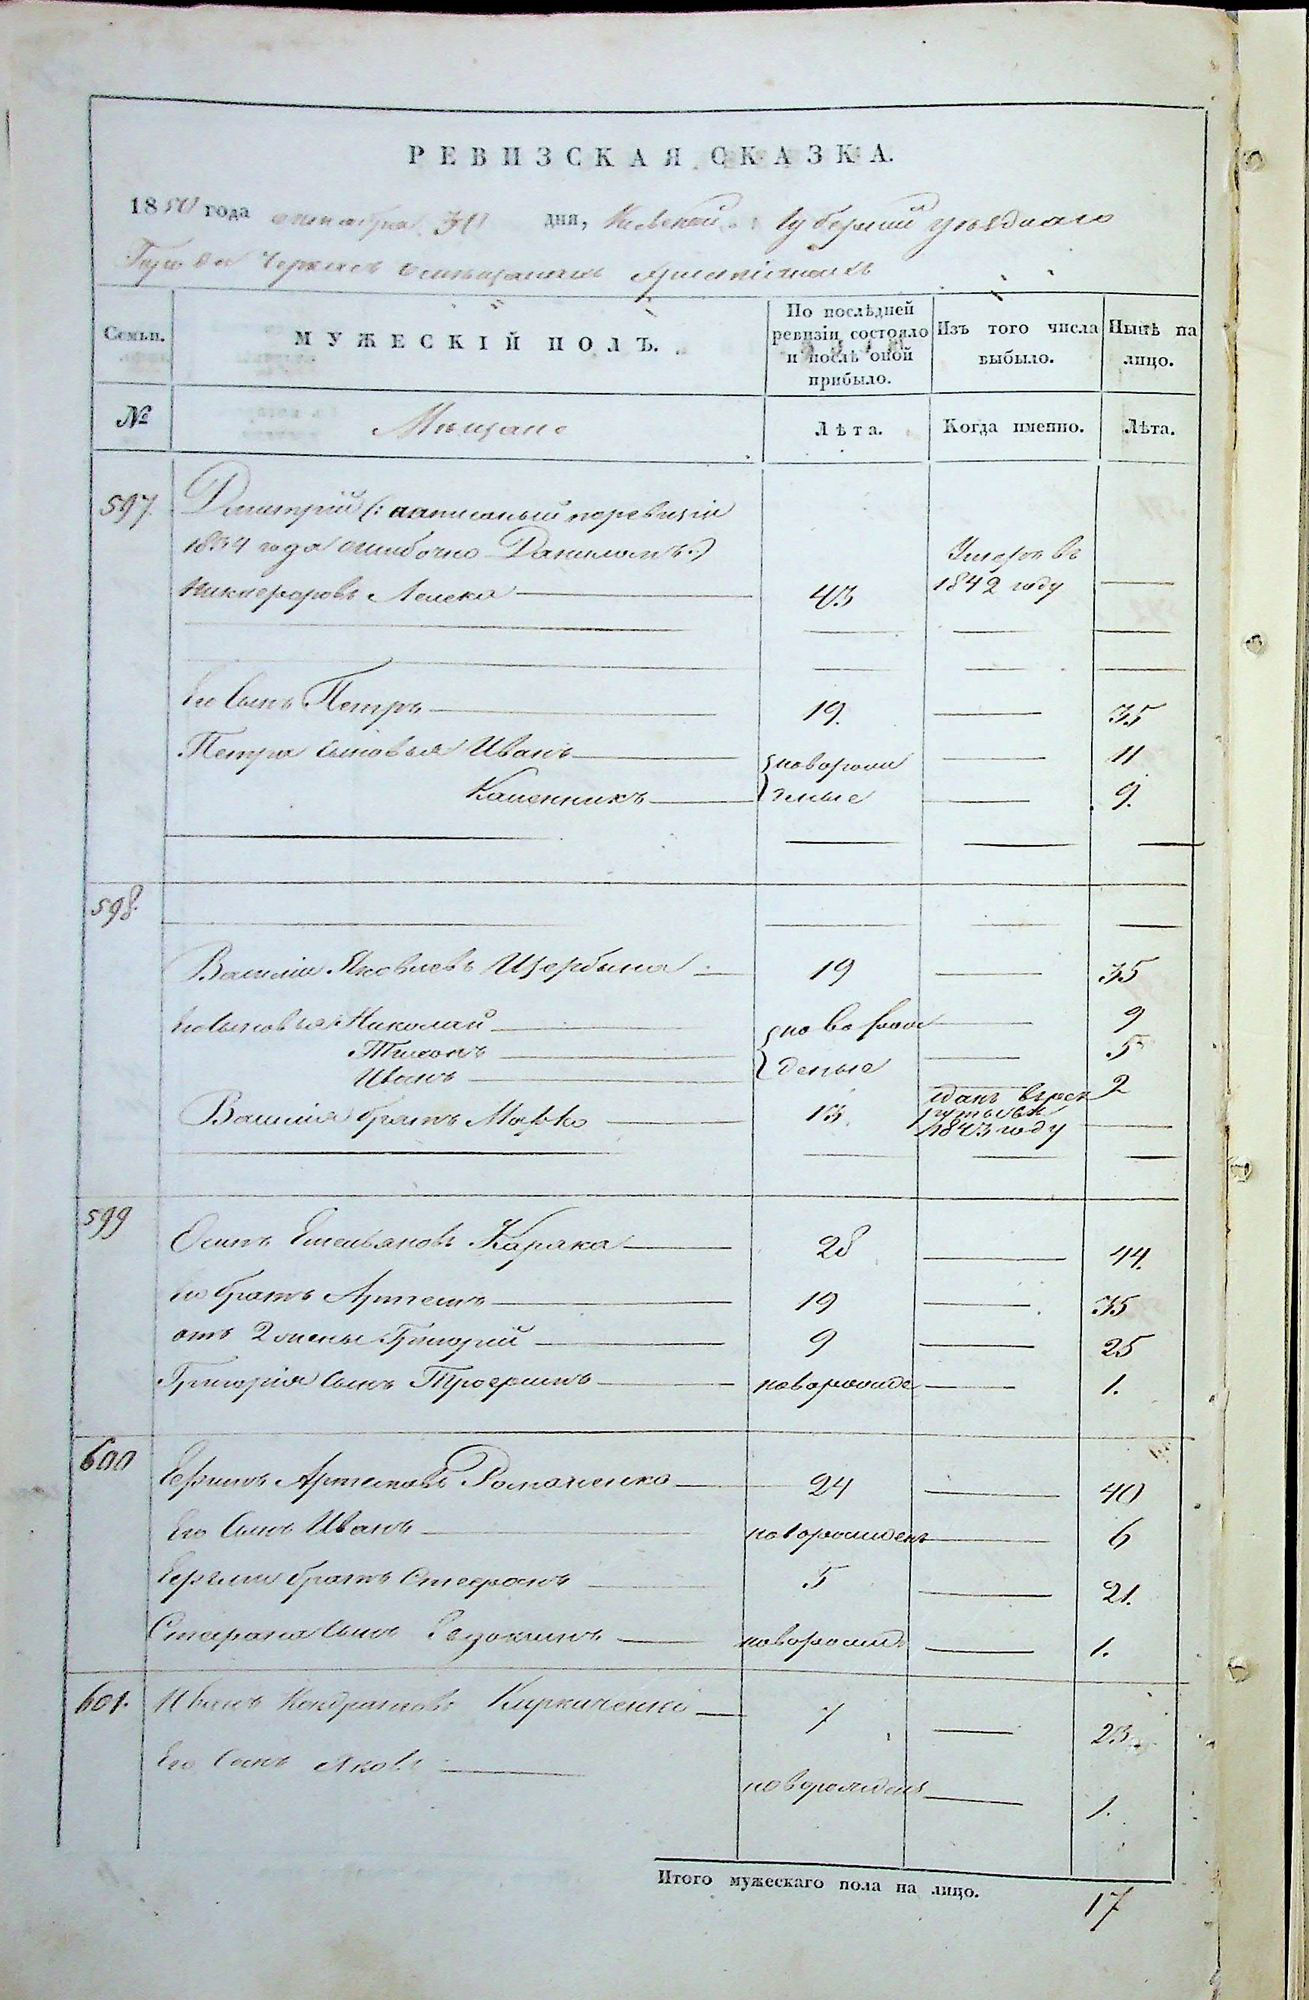 РЕВИЗСКАЯ СКАЗКА.
1850 года октября 30 дня, Киевской Губерніи уѣзднаго
Города Черкасъ о мѣщанахъ Христіянахъ
Семьи.
МУЖЕСКІЙ ПОЛЪ.
По послѣдней ревизіи состояло и послѣ оной прибыло.
Изъ того числа выбыло.
Нынѣ на лицо.
№
Мѣщане
Лѣта.
Когда именно.
Лѣта.
597. Дмитрій (: написаный по ревизіи
1834 года ошибочно Даниломъ:)
Никифоровъ Лелека 43 Умеръ въ 1842 году
Его сынъ Петръ 19. 35
Петра сыновья Иванъ новорож 11
Каленникъ деные 9.
598.
Василій Яковлевъ Щербына 19 35
Его сыновья Николай новорож 9
Тихонъ деные 5
Иванъ 2
Василія братъ Марко 13. сданъ въ рек
рутъ въ
1843 году
599 Осипъ Емельяновъ Каряка 28 44.
Его братъ Артемъ 19 35
отъ 2 жены Григорій 9 25
Григорія сынъ Трофимъ новорожде 1.
600 Ефимъ Артемовъ Романенко 24 40
Его сынъ Иванъ новорожденъ 6
Ефима братъ Стефанъ 5 21.
Стефана сынъ Евдокимъ новорожд 1.
601. Иванъ Кондратовъ Кириченко 7 23.
Его сынъ Яковъ новорожденъ 1.
Итого мужескаго пола на лицо. 17